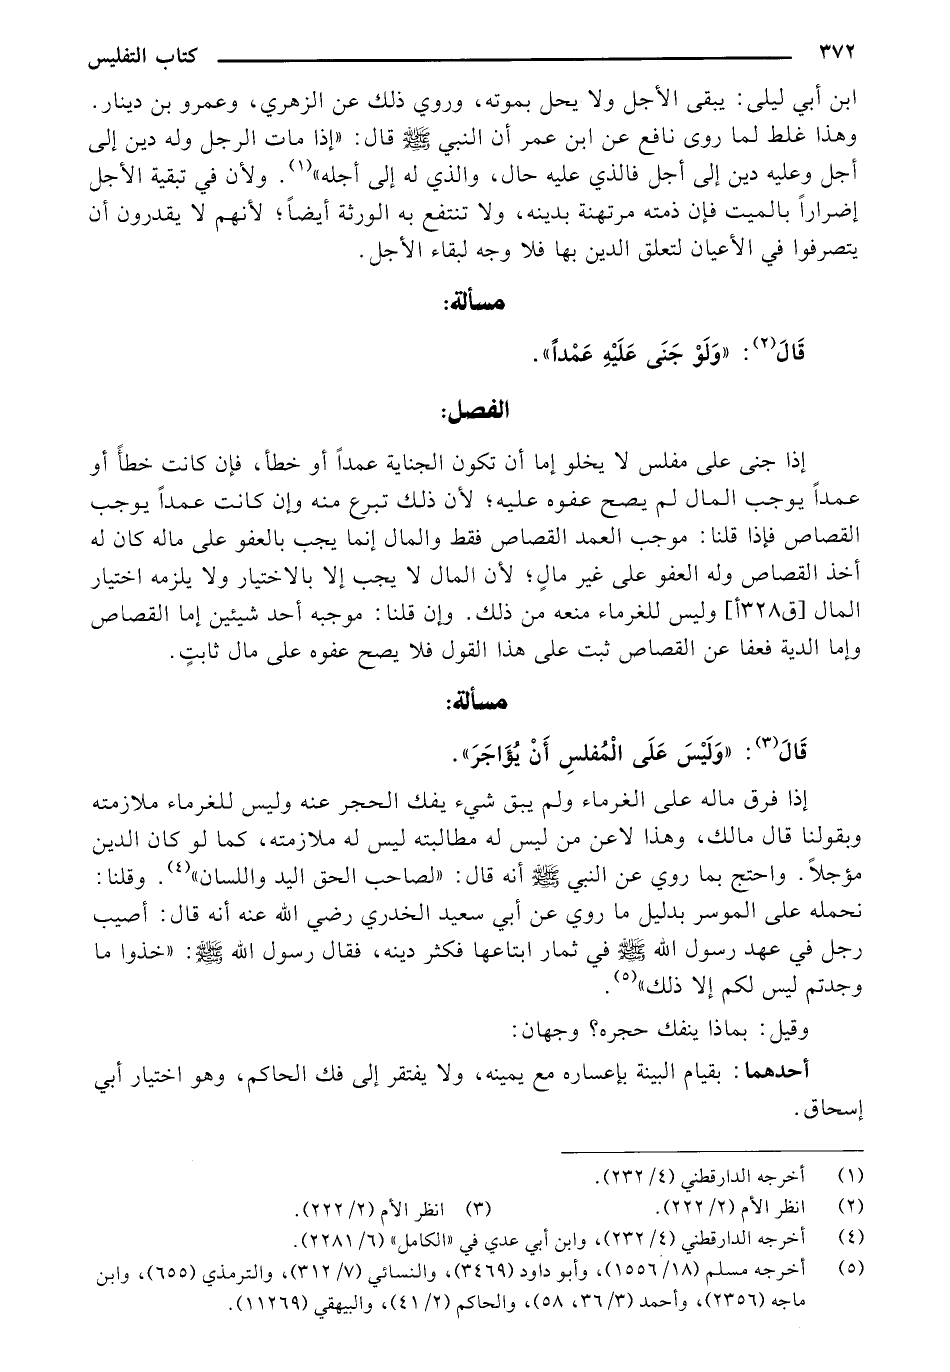 ٣٧٢ كتاب التفليس
ابن أبي ليلى: يبقى الأجل ولا يحل بموته، وروي ذلك عن الزهري، وعمرو بن دينار.
وهذا غلط لما روى نافع عن ابن عمر أن النبي ﷺ قال: «إذا مات الرجل وله دين إلى
أجل وعليه دين إلى أجل فالذي عليه حال، والذي له إلى أجله»(١). ولأن في تبقية الأجل
إضراراً بالميت فإن ذمته مرتهنة بدينه، ولا تنتفع به الورثة أيضاً؛ لأنهم لا يقدرون أن
يتصرفوا في الأعيان لتعلق الدين بها فلا وجه لبقاء الأجل.
مسألة:
قَالَ(٢): «وَلَوْ جَنَى عَلَيْهِ عَمْداً».
الفصل:
إذا جنى على مفلس لا يخلو إما أن تكون الجناية عمداً أو خطأ، فإن كانت خطأً أو
عمداً يوجب المال لم يصح عفوه عليه؛ لأن ذلك تبرع منه وإن كانت عمداً يوجب
القصاص فإذا قلنا: موجب العمد القصاص فقط والمال إنما يجب بالعفو على ماله كان له
أخذ القصاص وله العفو على غير مالٍ؛ لأن المال لا يجب إلا بالاختيار ولا يلزمه اختيار
المال [ق٣٢٨أ] وليس للغرماء منعه من ذلك. وإن قلنا: موجبه أحد شيئين إما القصاص
وإما الدية فعفا عن القصاص ثبت على هذا القول فلا يصح عفوه على مال ثابتٍ.
مسألة:
قَالَ(٣): «وَلَيْسَ عَلَى الْمُفلسِ أَنْ يُؤَاجَرَ».
إذا فرق ماله على الغرماء ولم يبق شيء يفك الحجر عنه وليس للغرماء ملازمته
وبقولنا قال مالك، وهذا لاعن من ليس له مطالبته ليس له ملازمته، كما لو كان الدين
مؤجلاً. واحتج بما روي عن النبي ﷺ أنه قال: «لصاحب الحق اليد واللسان»(٤). وقلنا:
نحمله على الموسر بدليل ما روي عن أبي سعيد الخدري رضي الله عنه أنه قال: أصيب
رجل في عهد رسول الله ﷺ في ثمار ابتاعها فكثر دينه، فقال رسول الله ﷺ: «خذوا ما
وجدتم ليس لكم إلا ذلك»(٥).
وقيل: بماذا ينفك حجره؟ وجهان:
أحدهما: بقيام البينة بإعساره مع يمينه، ولا يفتقر إلى فك الحاكم، وهو اختيار أبي
إسحاق.
(١) أخرجه الدارقطني (٤/ ٢٣٢).
(٢) انظر الأم (٢/ ٢٢٢). (٣) انظر الأم (٢/ ٢٢٢).
(٤) أخرجه الدارقطني (٤/ ٢٣٢)، وابن أبي عدي في «الكامل» (٦/ ٢٢٨١).
(٥) أخرجه مسلم (١٨/ ١٥٥٦)، وأبو داود (٣٤٦٩)، والنسائي (٧/ ٣١٢)، والترمذي (٦٥٥)، وابن
ماجه (٢٣٥٦)، وأحمد (٣/ ٣٦، ٥٨)، والحاكم (٢/ ٤١)، والبيهقي (١١٢٦٩).